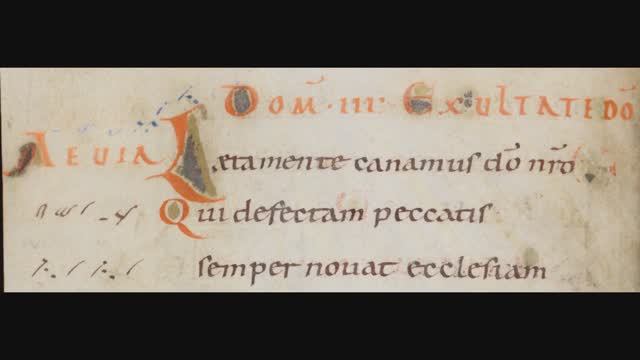 Dom̄ · III · Exultate dō
AEVIA Lætamente canamus dō nr̄o
Qui defectam peccatis
semper nouat ecclesiam